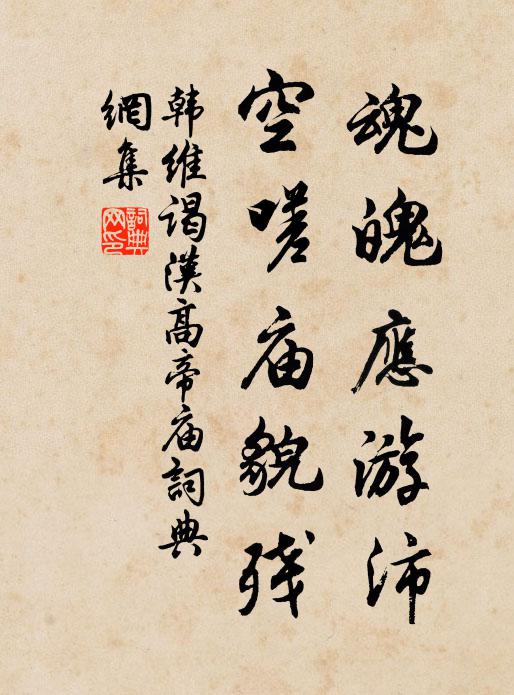 魂魄應游沛
空嗟庙貌残
韩维谒漢高帝庙詞典
網集
詞典网印